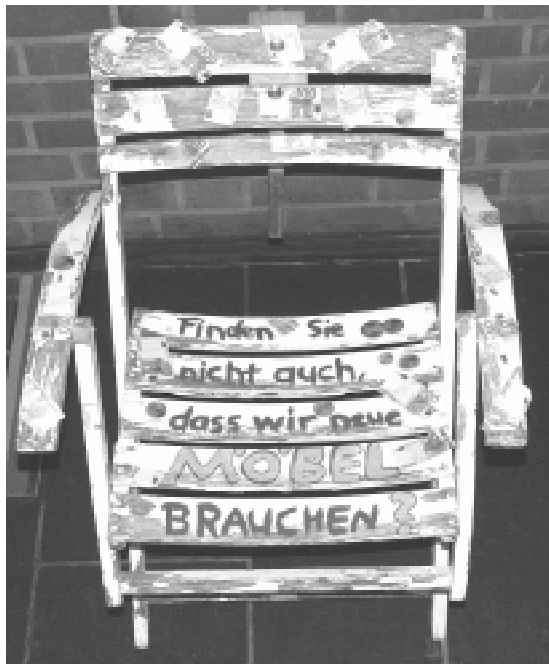 Finden Sie
nicht auch,
dass wir neue
MÖBEL
BRAUCHEN?